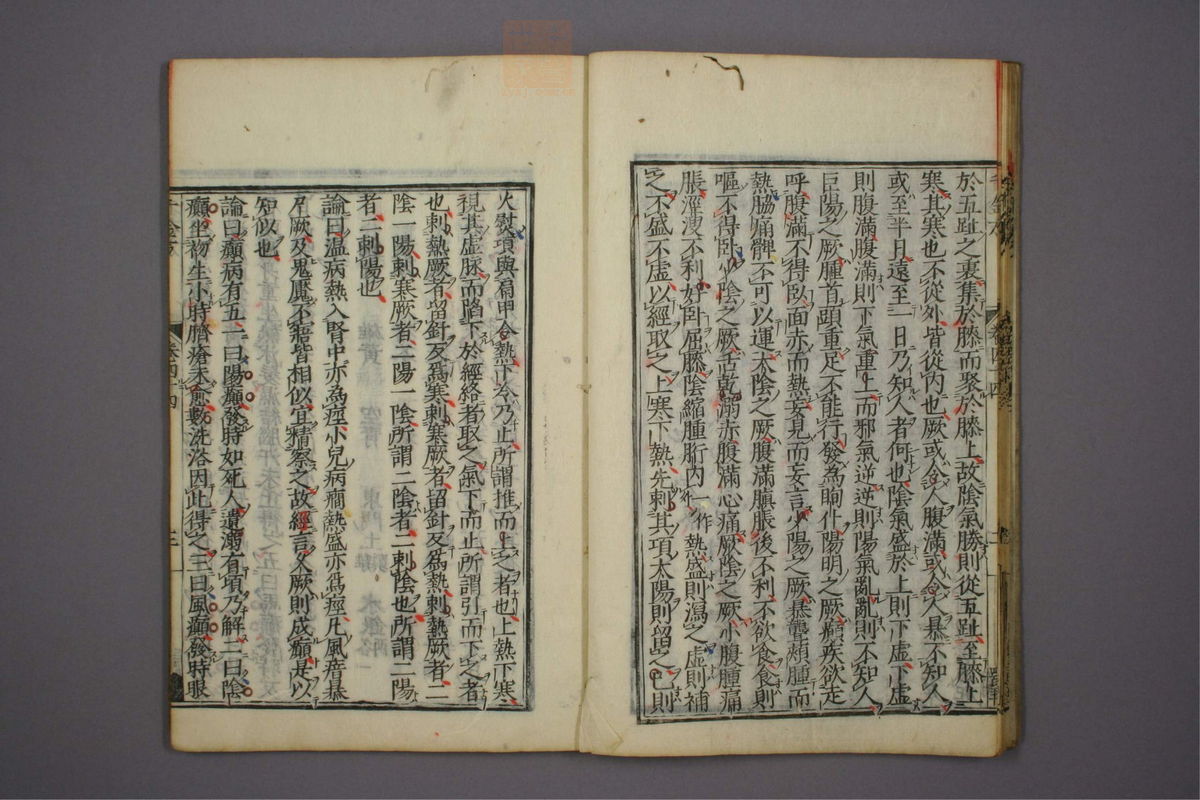 於五趾之裏集於膝而聚於膝上故陰氣勝則從五趾至膝上
寒其寒也不從外皆從内也厥或令人腹滿或令人暴不知人
或至半日遠至一日乃知人者何也陰氣盛於上則下虛下虛
則腹滿腹滿則下氣重上而邪氣逆逆則陽氣亂亂則不知人
巨陽之厥腫首頭重足不能行發為眴仆陽明之厥癲疾欲走
呼腹滿不得臥面赤而熱妄見而妄言少陽之厥暴聾頰腫而
熱脇痛髀不可以運太陰之厥腹滿䐜脹後不利不欲食食則
嘔不得卧少陰之厥舌乾溺赤腹滿心痛厥陰之厥小腹腫痛
脹涇溲不利好卧屈膝陰縮腫胻内熱盛則瀉之虛則補
之不盛不虛以經取之上寒下熱先刺其項太陽則留之已則
火熨項與肩甲令熱下冷乃止所謂推而上之者也上熱下寒
視其虛脉而陷下於經絡者取之氣下而止所謂引而下之者
也刺熱厥者留針反為寒刺寒厥者留針反為熱刺熱厥者二
陰一陽刺寒厥者二陽一陰所謂二陰者二刺陰也所謂二陽
者二刺陽也
論曰温病熱入腎中亦為痙小兒病癇熱盛亦為痙凡風瘖暴
尸厥及鬼魘不寤皆相似宜精察之故經言久厥則成癲是以
知似也
論曰癲病有五一曰陽癲發時如死人遺溺有頃乃解二曰陰
癲坐初生小時臍瘡未愈數洗浴因此得之三曰風癲發時眼
卷四四